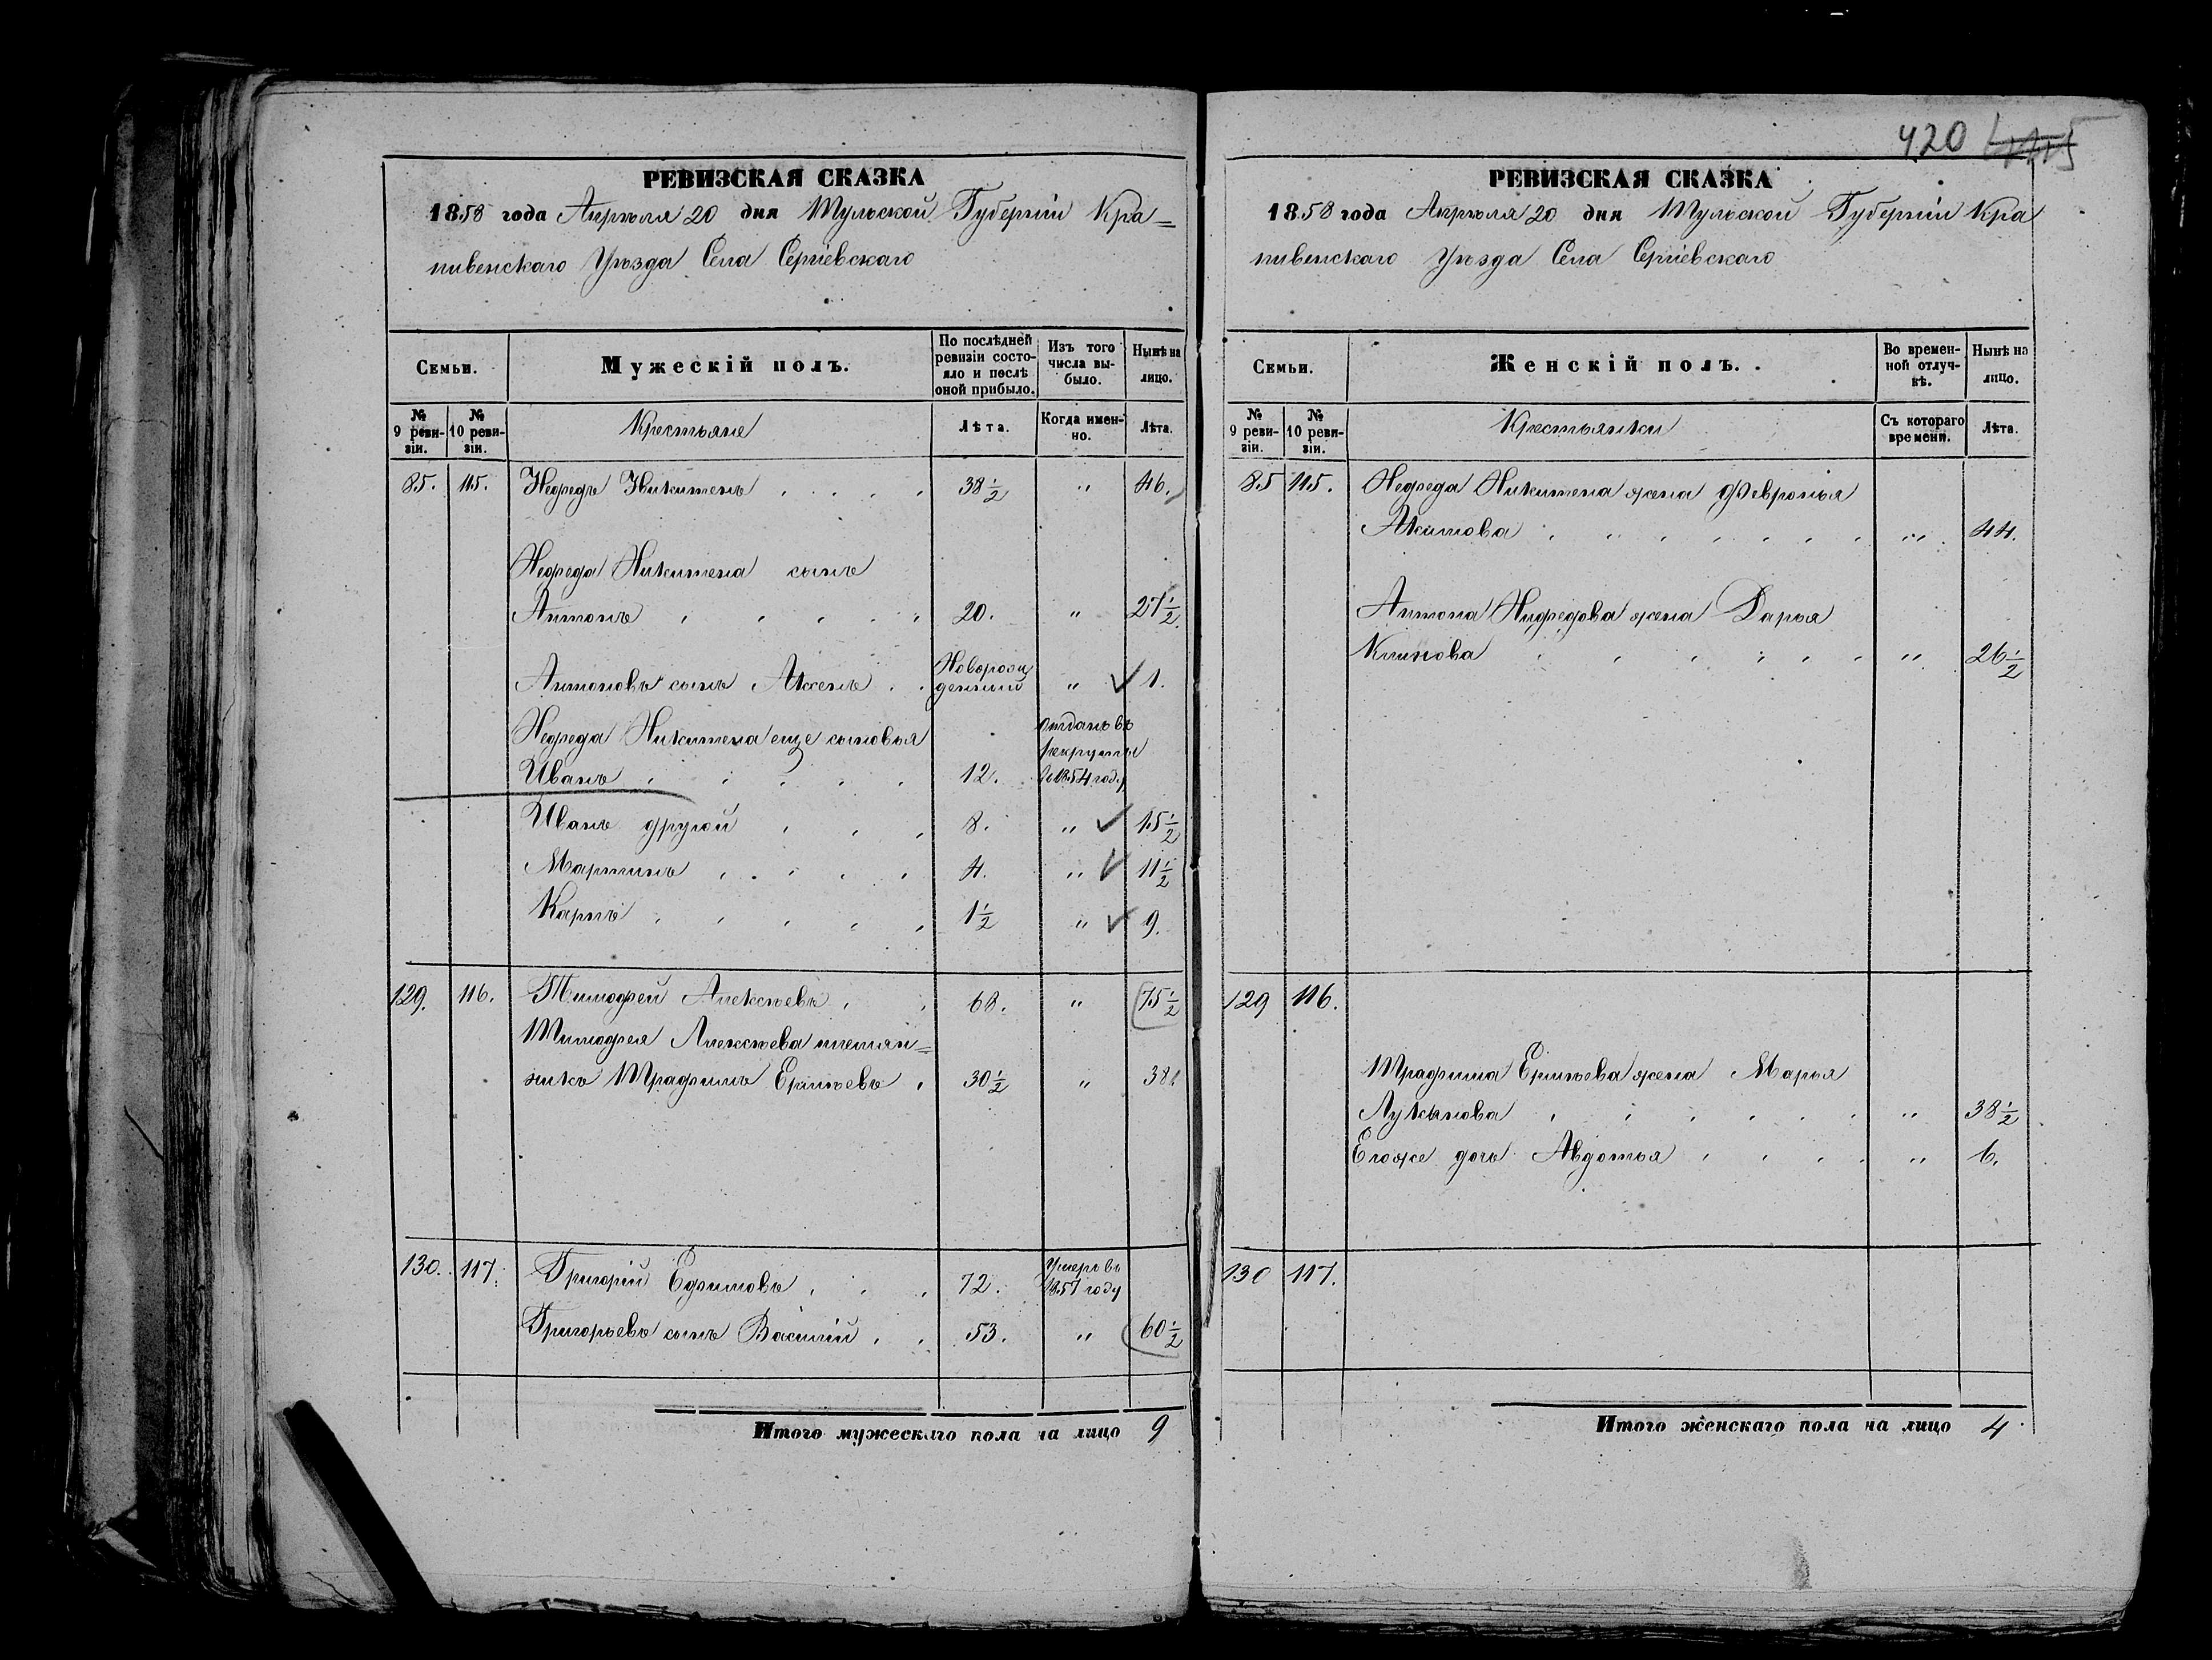 420
РЕВИЗСКАЯ СКАЗКА
1858 года Апрѣля 20 дня Тульской Губерніи Кра=
пивенскаго Уѣзда Села Сергіевскаго
Семьи.
Мужескій полъ.
По послѣдней ревизіи состояло и послѣ оной прибыло.
Изъ того числа выбыло.
Нынѣ на лицо.
№ 9 ревизіи.
№ 10 ревизіи.
Крестьяне
Лѣта.
Когда именно.
Лѣта.
85. 115. Нефедъ Никитенъ 38½ " 46.
Нефеда Никитена сынъ
Антонъ 20. " 27½
Антоновъ сынъ Аксенъ Новорож
денный " 1.
Нефеда Никитена еще сыновья
Иванъ 12. Отданъ въ
рекруты
въ 1854 году
Иванъ другой 8. " 15½
Мартинъ 4. " 11½
Карпъ 1½ " 9.
129. 116. Тимофей Алексѣевъ 68. " 75½
Тимофея Алексѣева племян=
никъ Трафимъ Ермѣевъ 30½ " 38
130. 117. Григорій Ефимовъ 72. Умеръ въ
1857 году
Григорьевъ сынъ Василій 53. " 60½
Итого мужескаго пола на лицо 9
РЕВИЗСКАЯ СКАЗКА
1858 года Апрѣля 20 дня Тульской Губерніи Кра
пивенскаго Уѣзда Села Сергіевскаго
Семьи.
Женскій полъ.
Во временной отлучкѣ.
Нынѣ на лицо.
№ 9 ревизіи.
№ 10 ревизіи.
Крестьянки
Съ котораго времени.
Лѣта.
85 115. Нефеда Никитена жена Февронья
Акимова " 44.
Антона Нифедова жена Дарья
Климова " 26½
129 116.
Трафима Ермѣева жена Марья
Лукьянова " 38½
Егоже дочь Авдотья " 6.
130 117.
Итого женскаго пола на лицо 4